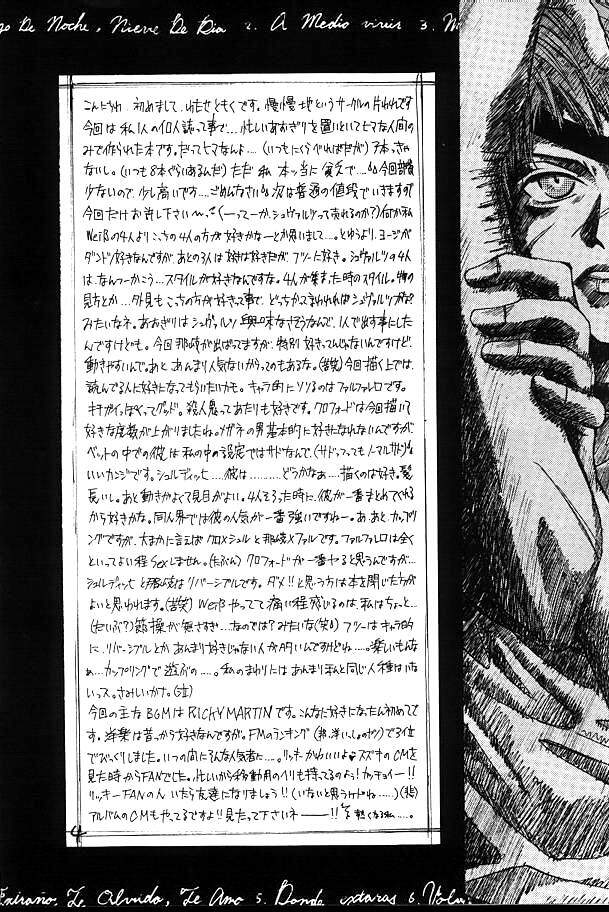 go De Noche, Nieve De Dia 2. A Medio vivir 3. M
こんにちわ 初めまして、わたせともくです。慢慢地というサークルの片われです
今回は私1人の個人誌って事で…忙しいあおぎりを置いといてヒマな人間の
みで作られた本です。だってヒマなんよ…(いつもにくらべればだが)7本っきゃ
ないし。(いつも8本ぐらいあるんだ)ただ 私 本ッ当に貧乏で…今回部数
少ないので、少し高いです…ごめんなさい 次は普通の値段でいきますので
今回だけお許し下さい〜(ーってーか、シュヴァルツって売れるのか?)何か私
Weißの4人よりこっちの4人の方が好きかなーとか思いまして…。とゆうより、ヨージが
ダントツ好きなんですが、あとの3人は 実は好きだが フツーに好き。シュヴァルツの4人
は、なんつーかこう…スタイルが好きなんですな。4人が集まった時のスタイル。物の
見方とか…外見も こっちの方が好きって事で、どっちかって言われればシュヴァルツかな
みたいなネ。あおぎりは シュヴァルツ 興味なさそうなんで、1人で出す事にした
んですけども。今回 那岐が出ばってますが、特別 好きってんじゃないんですけど、
動きやすいんで。あと、あんまり人気ないからってのもあるな。(苦笑)今回描く上では、
読んでる人に好きになってもらいたいカモ。キャラ的にソソるのはファルファレロです。
キチガイっぽくってグッド。殺人鬼ってあたりも好きです。クロフォードは今回描いて
好きな度数が上がりましたね。メガネの男基本的に好きになれないんですが
ベットの中での彼は 私の中の設定ではサドなんで、(サドっつってもノーマルサド)
いいカンジです。シュルディッヒ…彼は………どうかなぁ…描くのは好き。髪
長いし。あと動きがよくて見目がよい。4人そろった時に、彼が一番まとめてくれる
から好きかな。同人界では彼の人気が一番強いですねー。あ、あと、カップリ
ングですが、大まかに言えば クロ×シュルと那岐×ファルです。ファルファレロは全く
といってよい程Sexしません。(たぶん)クロフォードが一番ヤると思うんですが…
シュルディッヒと那岐は リバーシブルです。ダメ!!と思う方は本を閉じた方が
よいと思われます。(苦笑)Weißやってて痛い程感じるのは、私はちょっと…
(だいぶ?)節操が無さすぎ…なのでは?みたいな(笑)フツーはキャラ的
に、リバーシブルとか あんまり好きじゃない人が多いんですけどね…。楽しいもんな
ぁ…カップリングで 遊ぶの…。私のまわりには あんまり私と同じ人種はいな
いっス。さみしいカナ。(泣)
今回の主なBGMはRICKY MARTINです。こんなに好きになったん初めてで
す。洋楽は昔っから好きなんですが。FMのランキングで3位
でびっくりしました。いつの間にそんな人気者に…。リッキーかわいいよ♥スズキのCMを
見た時からFANでした。忙しいから移動用のハリも持ってるのよう!カッチョイー!!
リッキーFANの人 いたら友達になりましょう!!(いないと思うケドね……)(悲)
アルバムのCMもやってるですよ!!見たって下さいネ――!!と熱くなる私…。
4
Extraño, Te Olvido, Te Amo 5. Donde estaras 6. Volv